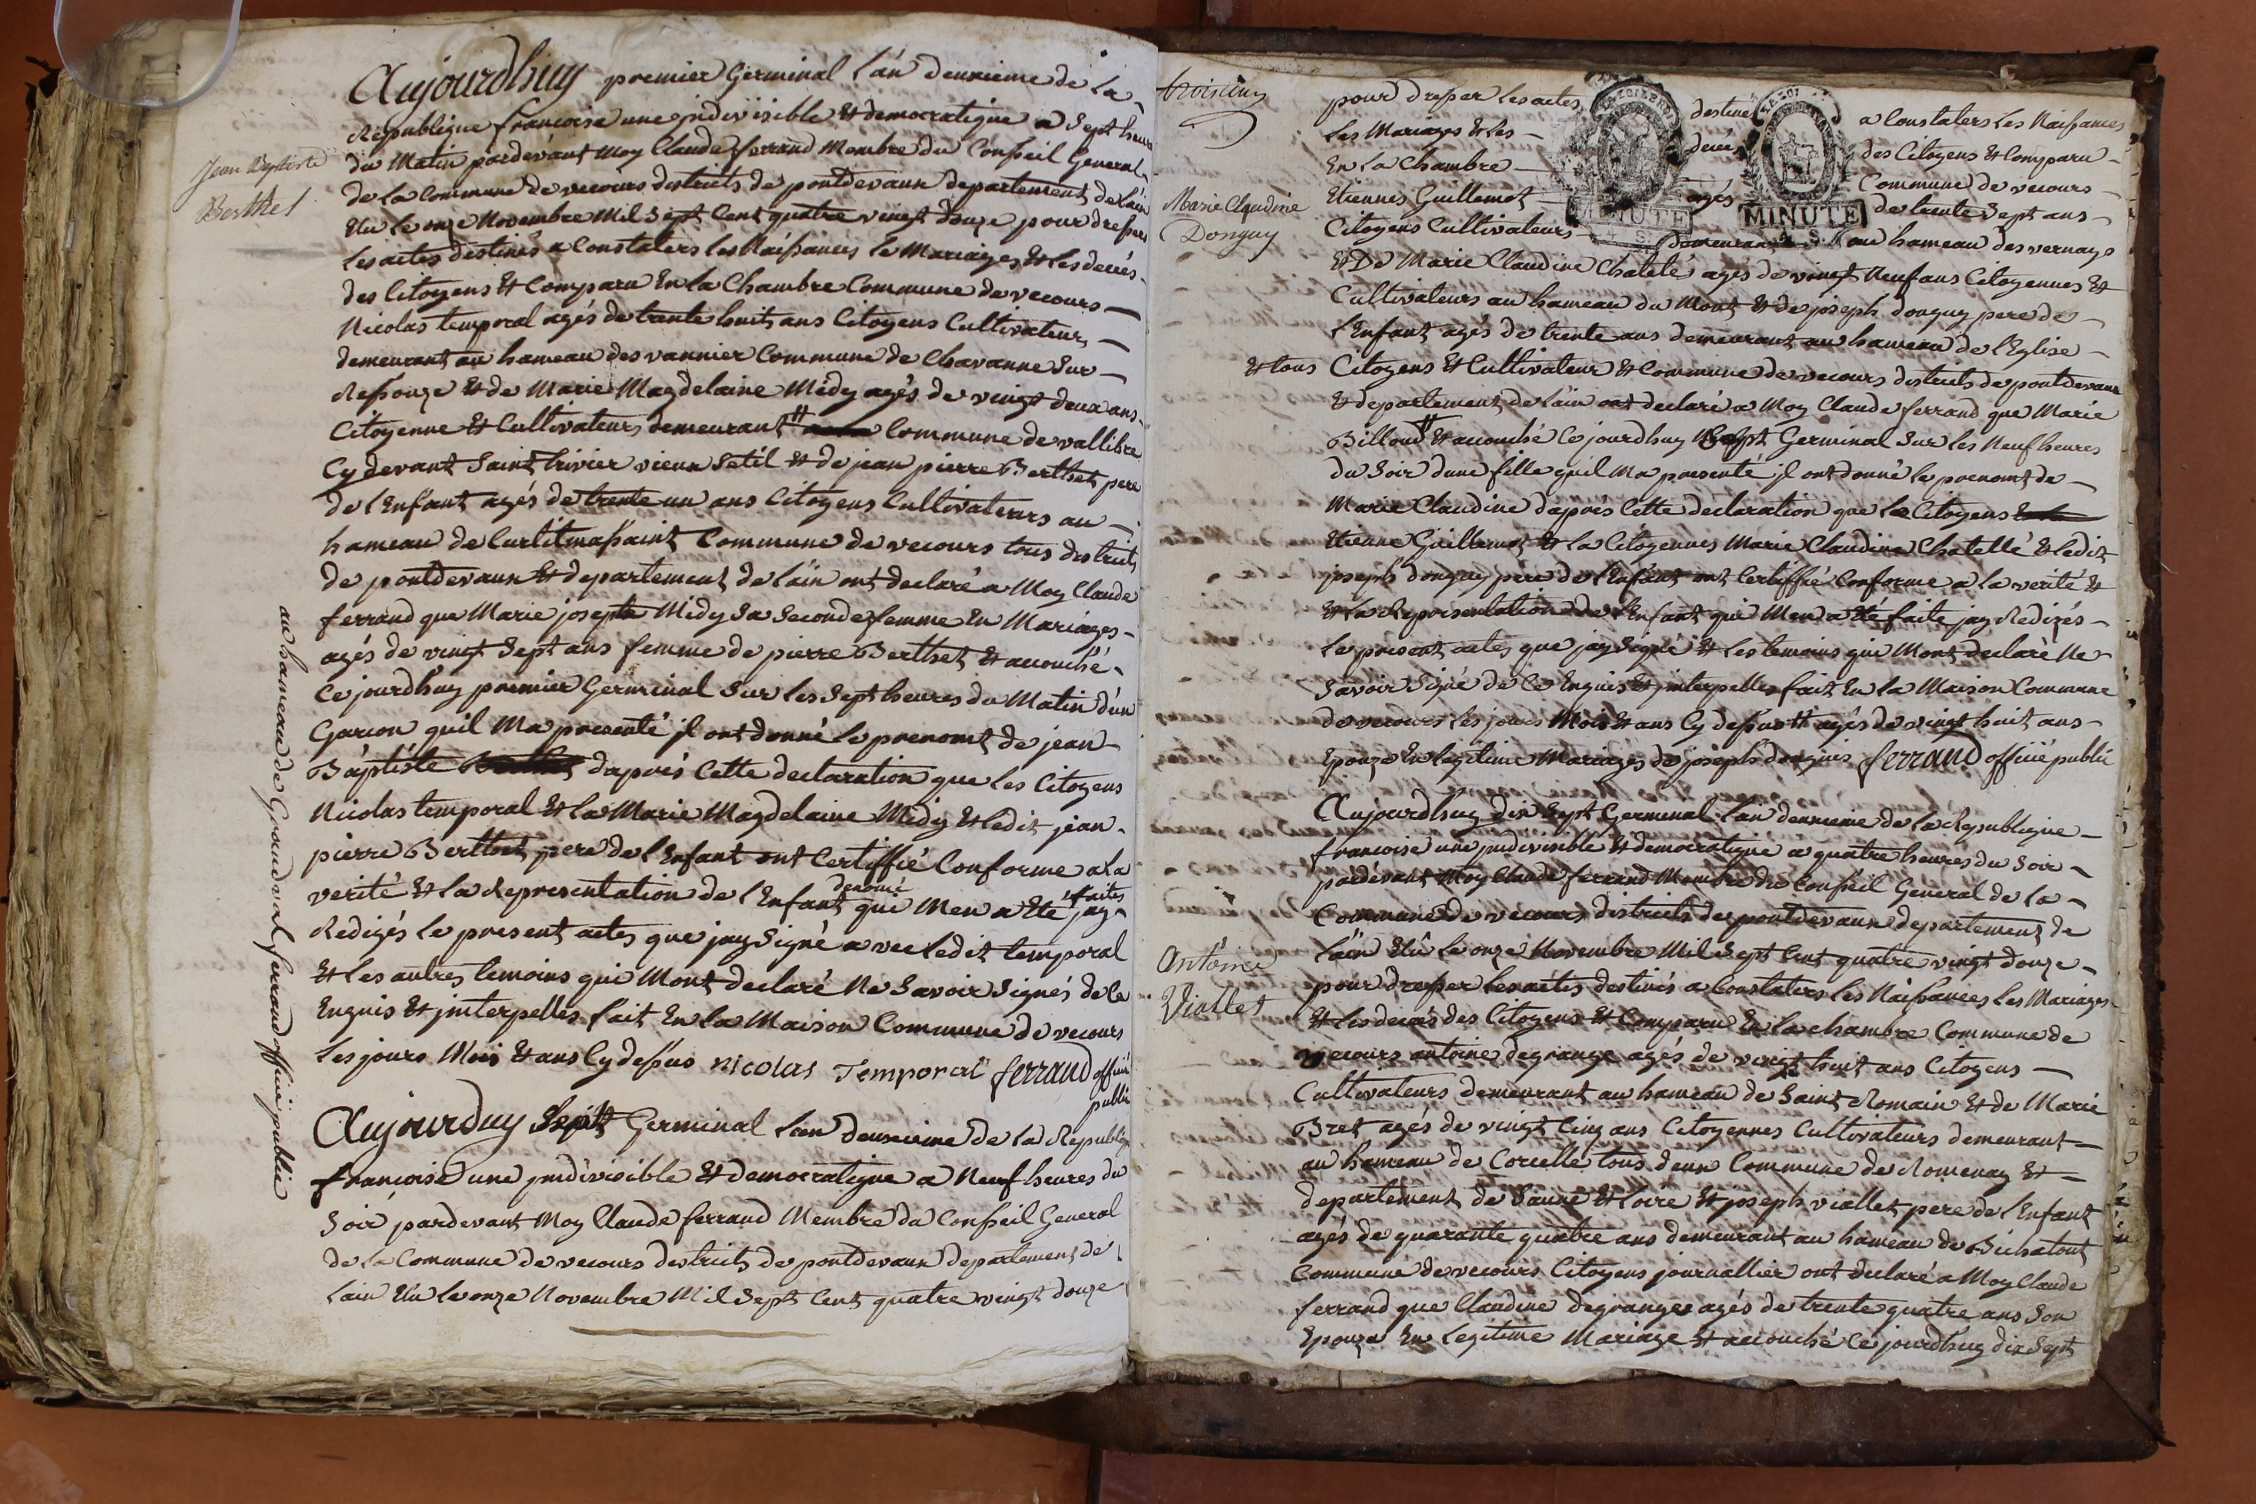 Jean Baptiste
Berthet
Aujourdhuy premier Germinal lán deuxieme de la
Republique francoise une jndivisible & democratique a sept heures
du Matin pardevant Moy Claude ferrand Membre du Conseil General
de la Commune de vecours destricts de pontdevaux departement de láin
Elu le onze Novembre Mil Sept Cent quatre vingt douze pour dresser
les actes destinés a Constaters les Naissances le Mariages & les decés
des Citoyens & Comparu En la Chambre Commune de vecours
Nicolas temporal agés de trente huit ans Citoyens Cultivateurs
demeurant au hameau des vannier Commune de Chavanne sur
Ressouze & de Marie Magdelaine Midy agés de vingt deux ans
Citoyenne & Cultivateurs demeurant # Commune de vallibre
Cy devant Saint trivier vieux Setil & de jean pierre Berthet pere
de l'Enfant agés de trente un ans Citoyens Cultivateurs au
hameau de Curtitmassaint Commune de vecours tous destricts
de pontdevaux & departement de láin ont declaré a Moy Claude
ferrand que Marie josepte Midy Sa Seconde femme En Mariages
agés de vingt Sept ans femme de pierre Berthet & acouché
Ce jourdhuy premier Germinal Sur les Sept heures du Matin dún
Garcon quil Ma presenté jl ont donné le prenomt de jean
Báptiste dapres Cette declaration que les Citoyens
Nicolas temporal & la Marie Magdelaine Midy & ledit jean
pierre Berthet pere de l'Enfant ont Certiffié Conforme a la
verité & la Representation de l'Enfant denomé qui Men a Eté faites jay
Redigés le present actes que jay Signé avec ledit temporal
& les autres temoins qui Mont declaré Ne Savoir Signés de ce
Enquis & jnterpelles fait En la Maison Commune de vecours
les jours Mois & ans Cy dessus nicolas Temporal ferrand officié
public
au hameau de Grand val ferrand officié public
Aujourduy Sept Germinal lan deuxieme de la Republique
francoise une jndivisible & democratique a Neuf heures du
Soir pardevant Moy Claude ferrand Membre du Conseil General
de la Commune de vecours destricts de pontdevaux departement de
lain Elu le onze Novembre Mil Sept Cent quatre vingt douze
Marie Claudine
Donguy
pour dresser les actes destinés a Constaters les Naissances
les Mariages & les decés des Citoyens & Comparu
En la Chambre Commune de vecours
Etiennes Guillemot agés de trente Sept ans
Citoyens Cultivateurs demeurant au hameau des vernays
MINUTE
MINUTE
& De Marie Claudine Chateté agés de vingt Neuf ans Citoyennes &
Cultivateurs au hameau du Mont & de joseph donguy pere de
l'Enfant agés de trente ans demeurant au hameau de l'Eglise
& tous Citoyens & Cultivateur & Commune de vecours destricts de pontdevaux
& departement de láin ont declaré a Moy Claude ferrand que Marie
Billoud # & acouché Ce jourdhuy Sept Germinal Sur les Neuf heures
du Soir dune fille quil Ma presenté jl ont donné le prenomt de
Marie Claudine dápres Cette declaration que le Citoyens
Etienne Guillemot & la Citoyennes Marie Claudine Chatellé & ledit
joseph donguy pere de l'Enfant ont Certiffié Conforme a la verité &
& la Representation de l'Enfant qui Men a Eté faite jay Redigés
le present actes que jay Signé & les temoins qui Mont declaré Ne
Savoir Signé de Ce Enquis & jnterpelles fait En la Maison Commune
de vecours les jours Mois & ans Cy dessus # agés de vingt huit ans
Epouze En legitime Mariages de joseph donguis ferrand officié public
Antoine
Viallet
Aujourdhuy dix Sept Germinal lán deuxieme de la Republique
francoise une jndivisible & democratique a quatre heures du Soir
pardevant Moy Claude ferrand Membre du Conseil General de la
Commune de vecours destricts de pontdevaux departement de
láin Elû le onze Novembre Mil Sept Cent quatre vingt douze
pour dresser les actes destinés a Constaters les Naissances les Mariages
& les decés des Citoyens & Comparu En la chambre Commune de
vecours antoine degrange agés de vingt huit ans Citoyens
Cultivateurs demeurant au hameau de Saint Romain & de Marie
Bret agés de vingt Cinq ans Citoyennes Cultivateurs demeurant
au hameau de Corcelle tous deux Commune de Romenay &
departement de Saune & Loire & joseph viallet pere de l'Enfant
agés de quarante quatre ans demeurant au hameau de Bichatout
Commune de vecours Citoyens journallier ont declaré a Moy Claude
ferrand que Claudine degranges agés de trente quatre ans Son
Epouze En legitime Mariage & acouché Ce jourdhuy dix Sept